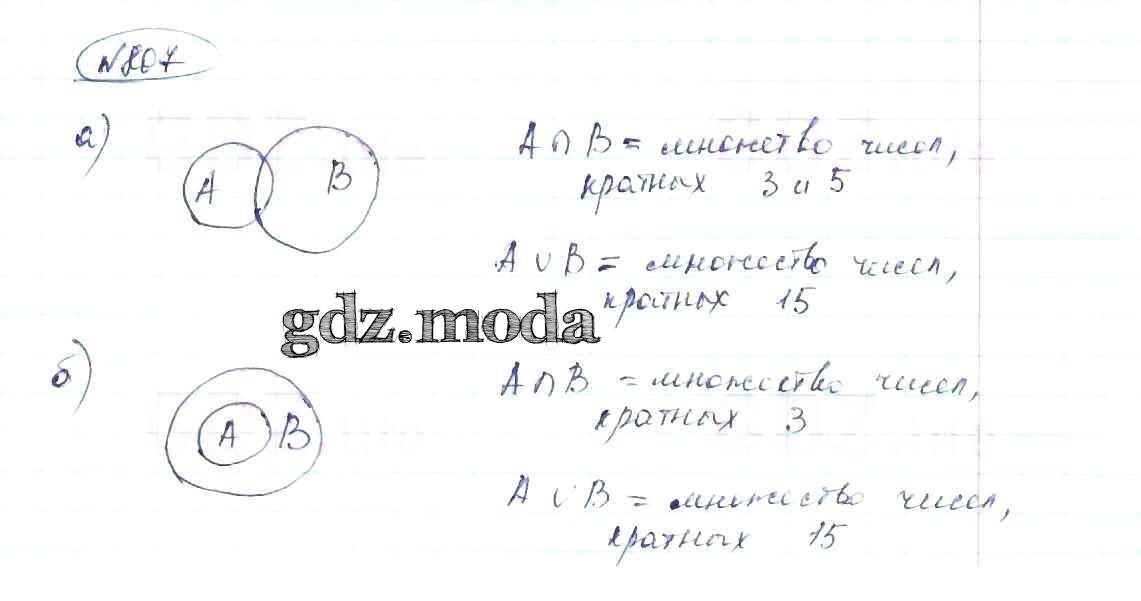 №807
а)
A B
A ∩ B = множество чисел,
кратных 3 и 5
A ∪ B = множество чисел,
кратных 15
gdz.moda
б)
A B
A ∩ B = множество чисел,
кратных 3
A ∪ B = множество чисел,
кратных 15